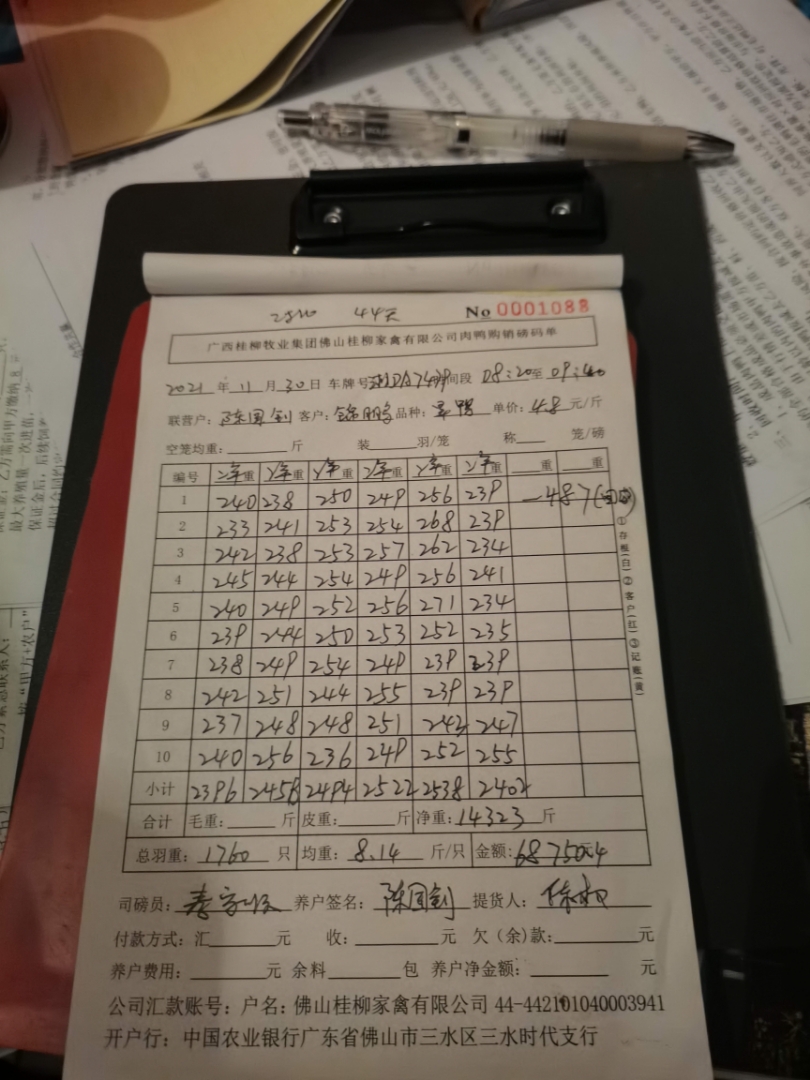 44天 No 0001088
广西桂柳牧业集团佛山桂柳家禽有限公司肉鸭购销磅码单
2021 年 11 月 30 日 车牌号 时间段 08:20 至 09:40
联营户: 陈国剑 客户: 锦鹏 品种: 单价: 4.8 元/斤
空笼均重: 斤 装 羽/笼 称 笼/磅
编号 重 重 重 重 重 重 重 重
1 240 238 250 249 256 239 -487
2 233 241 253 254 268 239
3 242 238 253 257 262 234
4 245 244 254 249 256 241
5 240 249 252 256 271 234
6 239 244 250 253 252 235
7 238 249 254 249 239 239
8 242 251 244 255 239 239
9 237 248 248 251 243 247
10 240 256 236 249 252 255
小计 2396 2458 2494 2522 2538 2402
合计 毛重: 斤 皮重: 斤 净重: 14323 斤
总羽重: 1760 只 均重: 8.14 斤/只 金额: 68750.4
司磅员: 养户签名: 陈国剑 提货人:
付款方式: 汇 元 收: 元 欠(余)款: 元
养户费用: 元 余料 包 养户净金额: 元
公司汇款账号: 户名: 佛山桂柳家禽有限公司 44-442101040003941
开户行: 中国农业银行广东省佛山市三水区三水时代支行
①存根(白)②客户(红)③记账(黄)